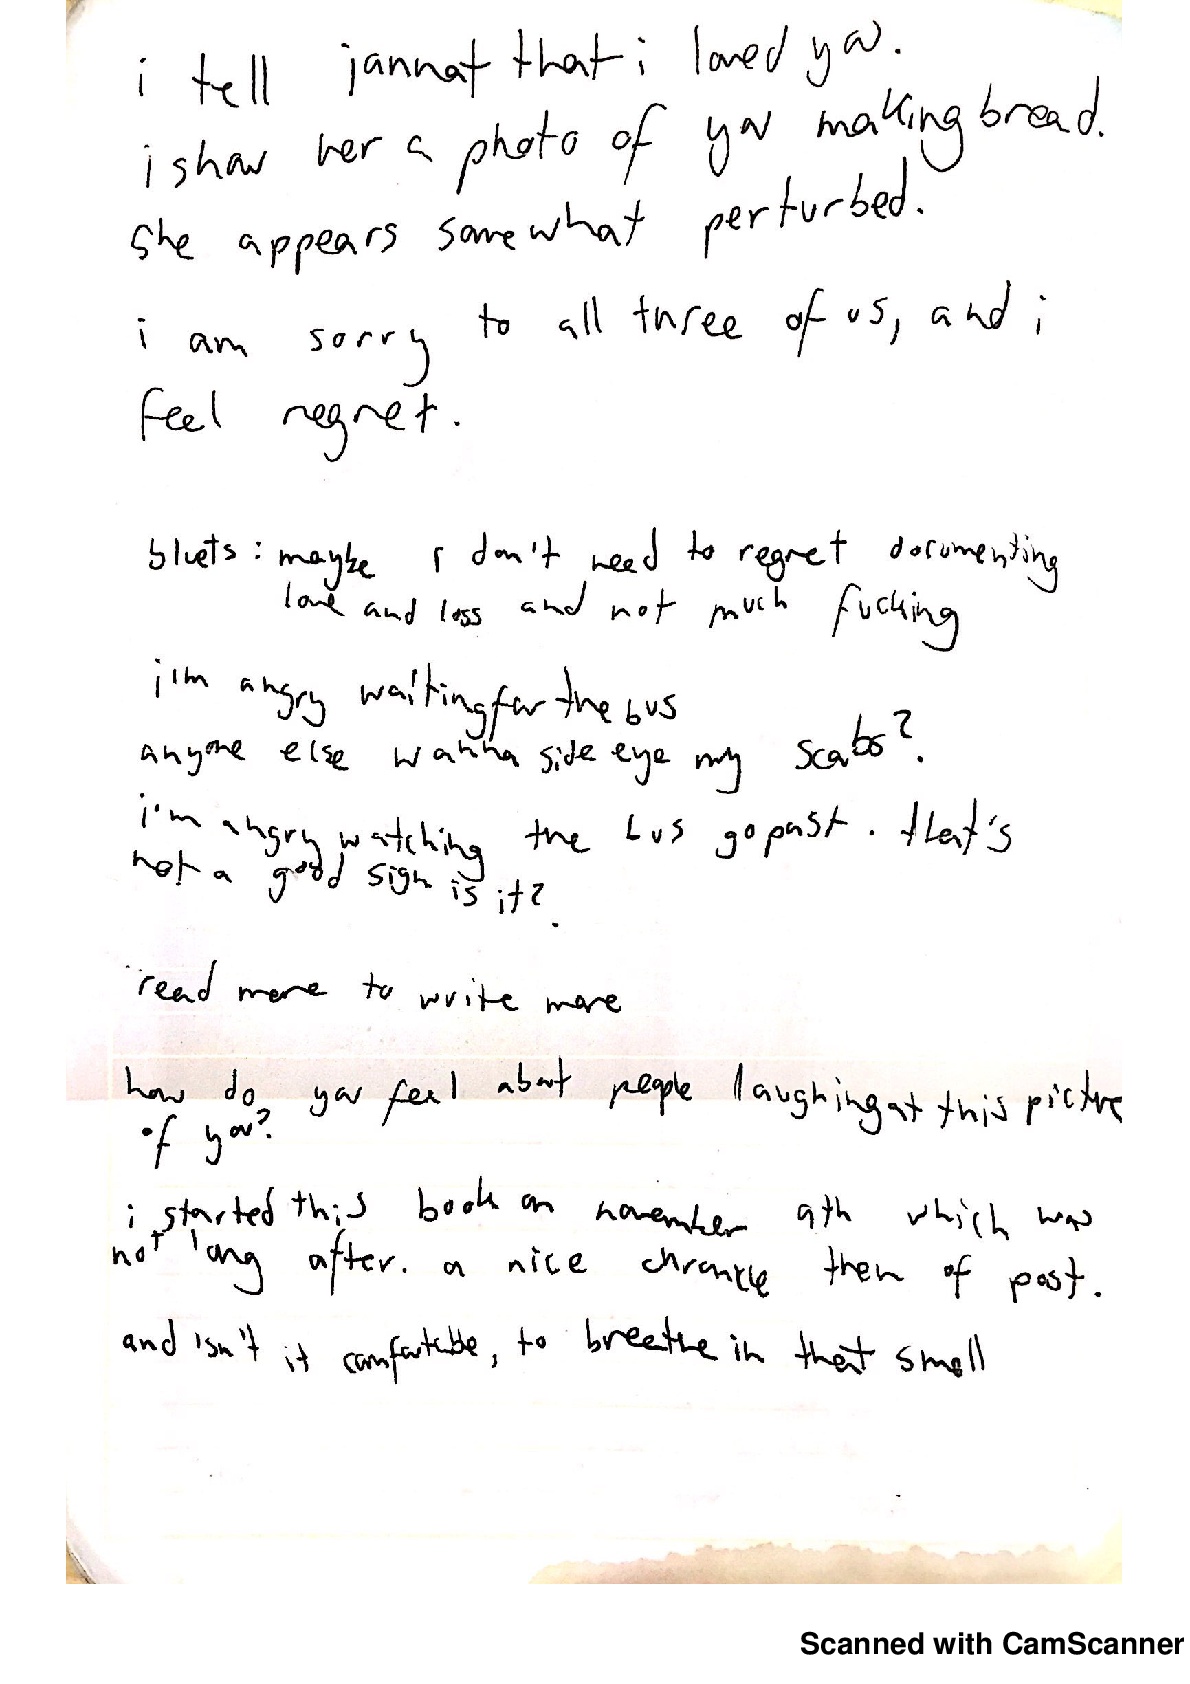 i tell jannat that i loved you.
i show her a photo of you making bread.
she appears somewhat perturbed.
i am sorry to all three of us, and i
feel regret.
bluets: maybe I don't need to regret documenting
love and loss and not much fucking
i'm angry waiting for the bus
anyone else wanna side eye my scabs?
i'm angry watching the bus go past. that's
not a good sign is it?
read more to write more
how do you feel about people laughing at this picture
of you?
i started this book on november 9th which was
not long after. a nice chronicle then of past.
and isn't it comfortable, to breathe in that smell
Scanned with CamScanner